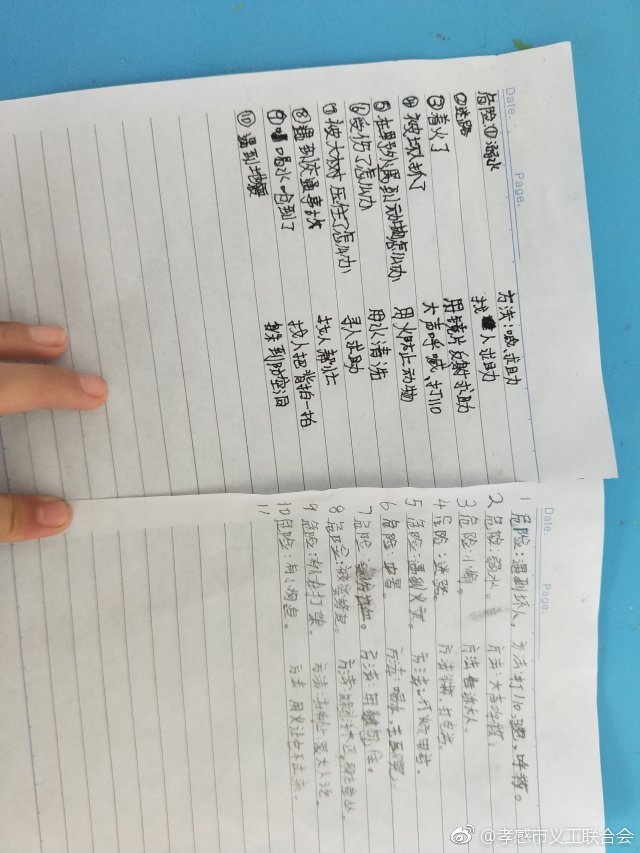 Date. Page.
危险①溺水 方法:喊求助
②迷路 找人求助
③着火了 用镜片反射求助
④被绑架了 大声呼喊,打110
⑤在野外遇到动物怎么办 用火防止动物
⑥受伤了怎么办 用水清洗
⑦被大树压住了怎么办 寻人求助
⑧遇到交通事故 找人帮忙
⑨喝水呛到了 找人把背拍一拍
⑩遇到地震 躲到防空洞
Date Page.
1危险:遇到坏人。方法:打110,跑,呼救。
2危险:弱水。 方法:大声呼救。
3危险:小偷。 方法:告诉大人。
4危险:迷路。 方法:打电话。
5危险:遇到火灾。 方法:打火警电话。
6危险:中暑。 方法:喝水,去医院。
7危险: 方法:用
8危险:被
9危险:有人打架。 方法:
10危险:有小狗追。 方法:用
11
@孝感市义工联合会